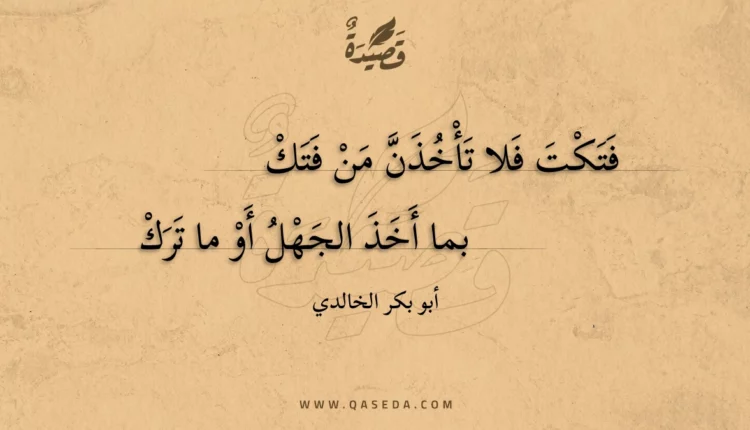 قَصِيْدَةٌ
فَتَكْتَ فَلا تَأْخُذَنَّ مَنْ فَتَكْ
بما أَخَذَ الجَهْلُ أَوْ ما تَرَكْ
أبو بكر الخالدي
WWW.QASEDA.COM